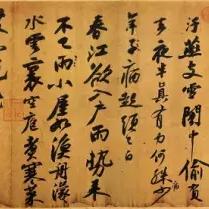 汙燕支雪闇中偷負
去夜半真有力何殊病少
年子病起頭已白
春江欲入戶雨勢來
不已雨小屋如漁舟濛
水雲裏空庖煮寒菜